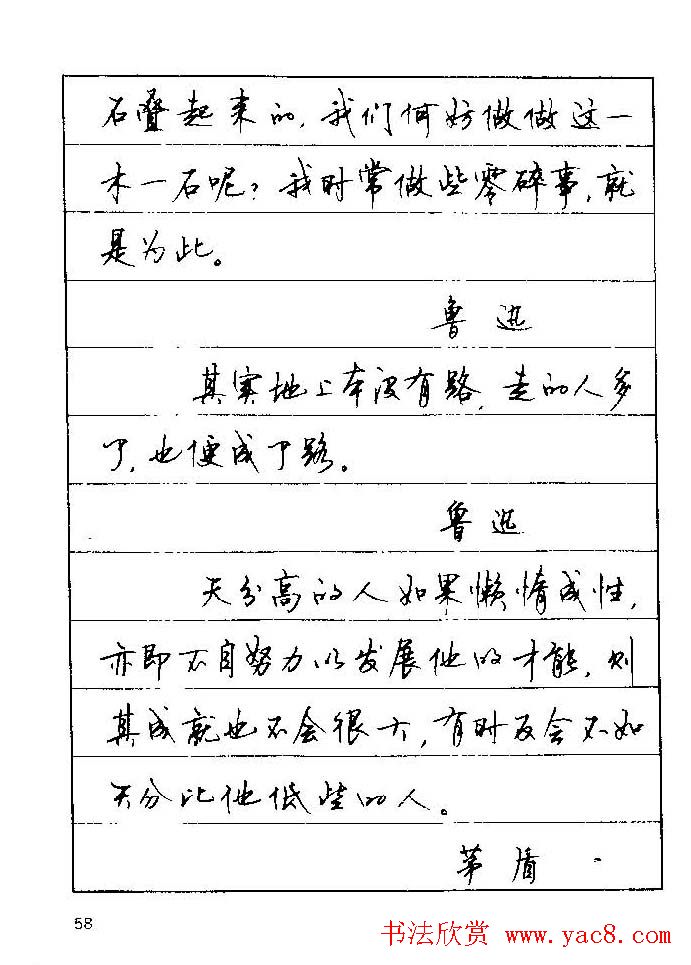 石叠起来的，我们何妨做做这一
木一石呢？我时常做些零碎事，就
是为此。
鲁迅
其实地上本没有路，走的人多
了，也便成了路。
鲁迅
天分高的人如果懒惰成性，
亦即不自努力以发展他的才能，则
其成就也不会很大，有时反会不如
天分比他低些的人。
茅盾
58
书法欣赏 www.yac8.com